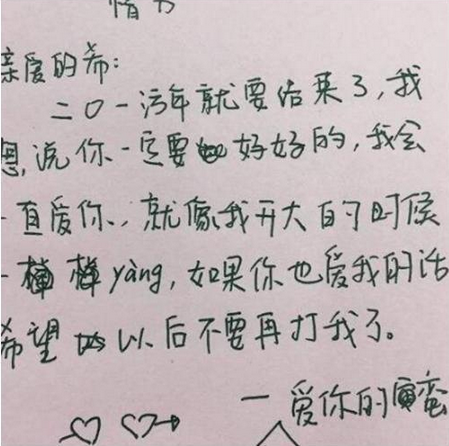 情书
亲爱的希:
二0一 年就要结束了,我
想说你一定要好好的,我会
一直爱你,就像我开大白的时候
一 yàng,如果你也爱我的话
希望 以后不要再打我了。
一爱你的